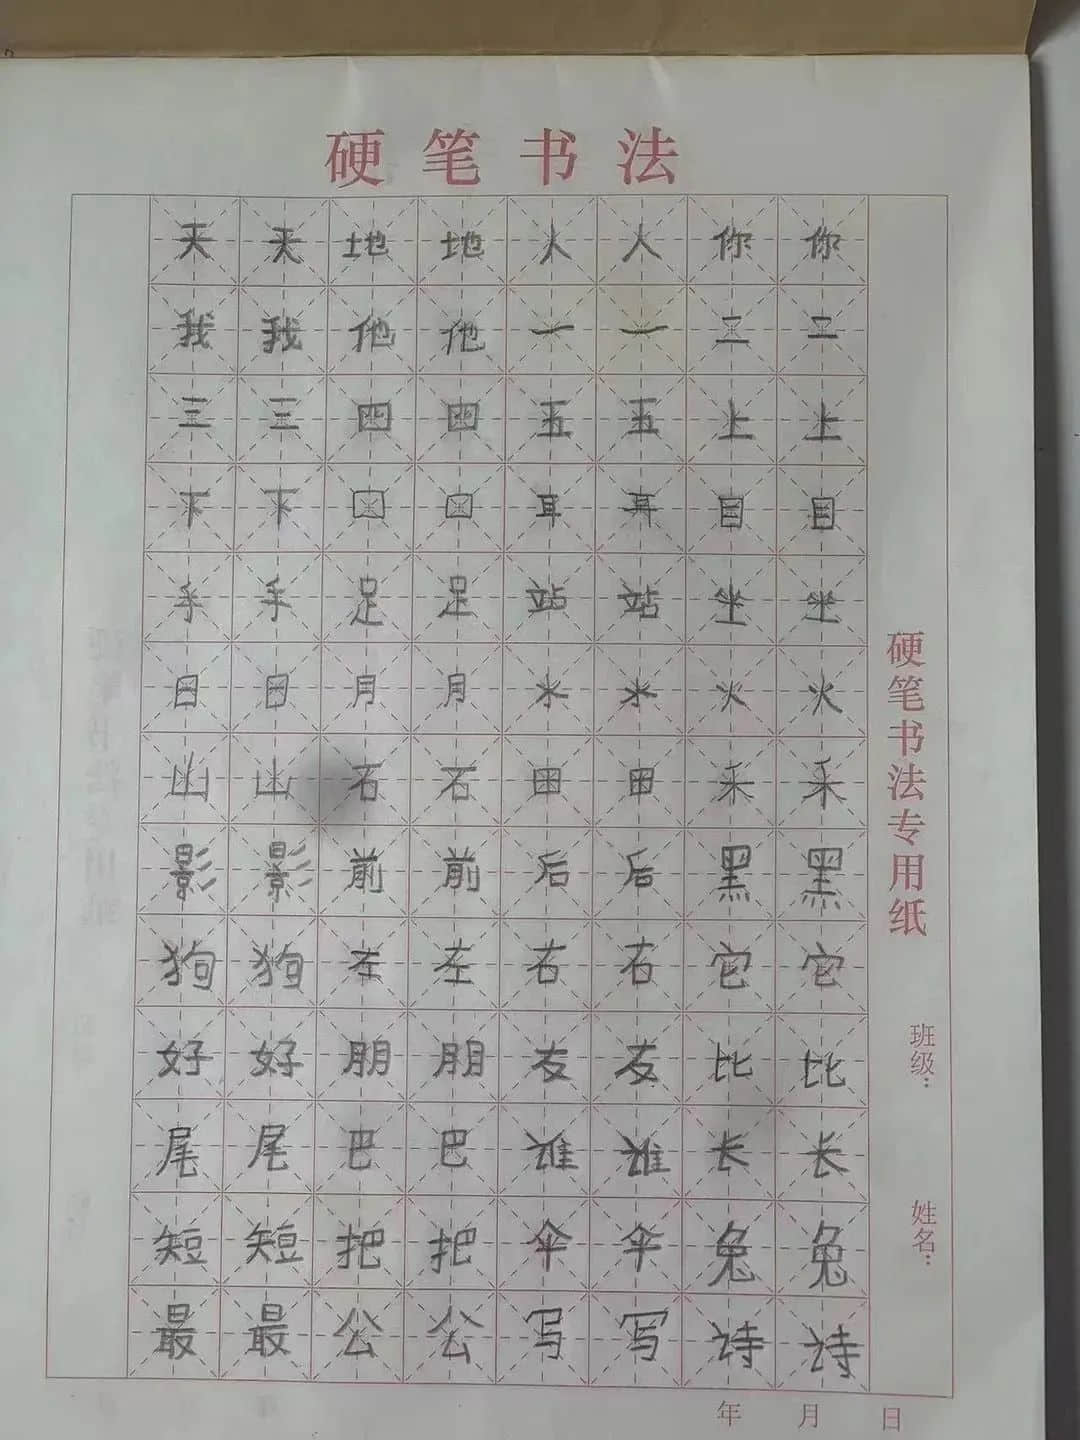 硬笔书法
天天地地人人你你
我我他他一一二二
三三四四五五上上
下下口口耳耳目目
手手足足站站坐坐
日日月月水水火火
山山石石田田禾禾
影影前前后后黑黑
狗狗左左右右它它
好好朋朋友友比比
尾尾巴巴谁谁长长
短短把把伞伞兔兔
最最公公写写诗诗
硬笔书法专用纸
班级：
姓名：
年 月 日